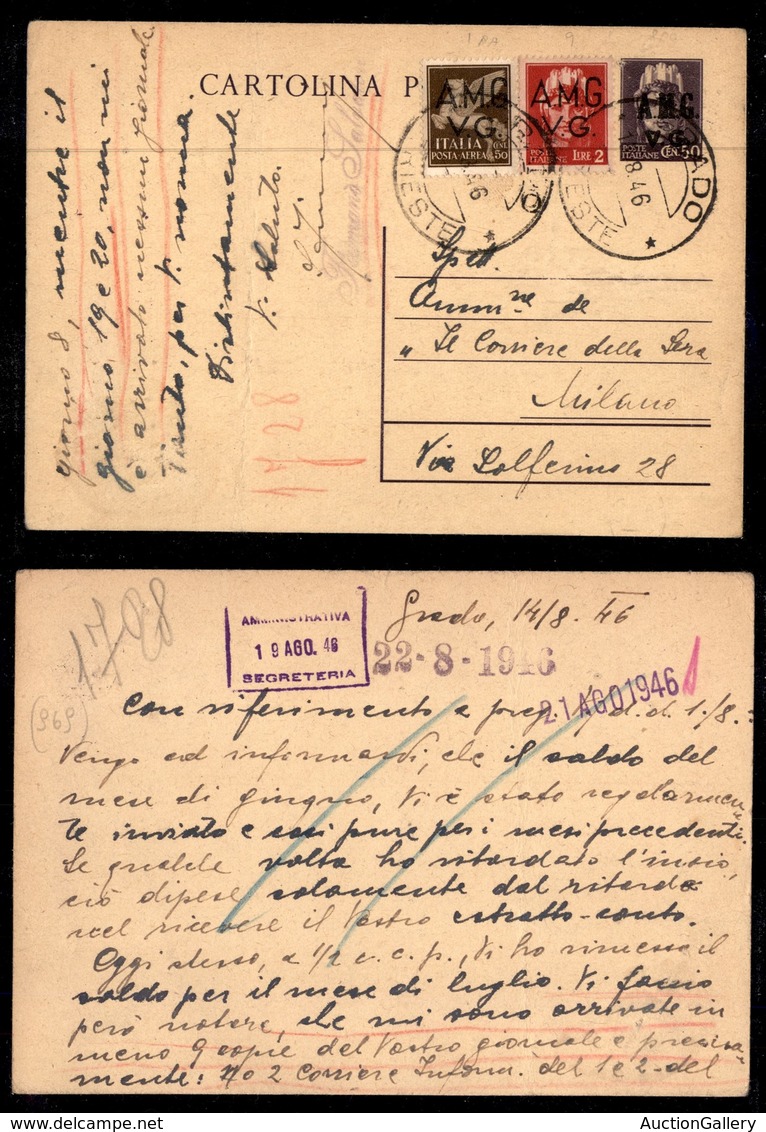 CARTOLINA P
A.M.G.
V.G.
ITALIA
POSTA-AEREA
CENT 50
A.M.G.
V.G.
POSTE ITALIANE
LIRE 2
A.M.G.
V.G.
POSTE ITALIANE
CEN. 50
TRIESTE
8 46
GRADO
TRIESTE
8 46
Spett.
Ammne de
„ Il Corriere della Sera
Milano
Via Solferino 28
giorno 8, mentre il
giorno 19 e 20, non mi
è arrivato nessun giornale.
Tanto, per V. norma.
Distintamente
V. Saluto.
17/28
1728
(969)
AMMINISTRATIVA
19 AGO. 46
SEGRETERIA
Grado, 14/8. 46
22-8-1946
21 AGO 1946
Con riferimento a preg. V. d. d. 1./8.=
Vengo ad informarvi, che il saldo del
mese di giugno, Vi è stato regolarmen=
te inviato e così pure per i mesi precedenti.
Se qualche volta ho ritardato l'invio,
ciò dipese solamente dal ritardo
nel ricevere il Vostro estratto-conto.
Oggi stesso, a 1/2 c. c. p., Vi ho rimesso il
saldo per il mese di luglio. Vi faccio
però notare, che mi sono arrivate in
meno 9 copie del Vostro giornale e precisa=
mente: No 2 Corriere Inform. del 1 e 2 - del
AuctionGallery